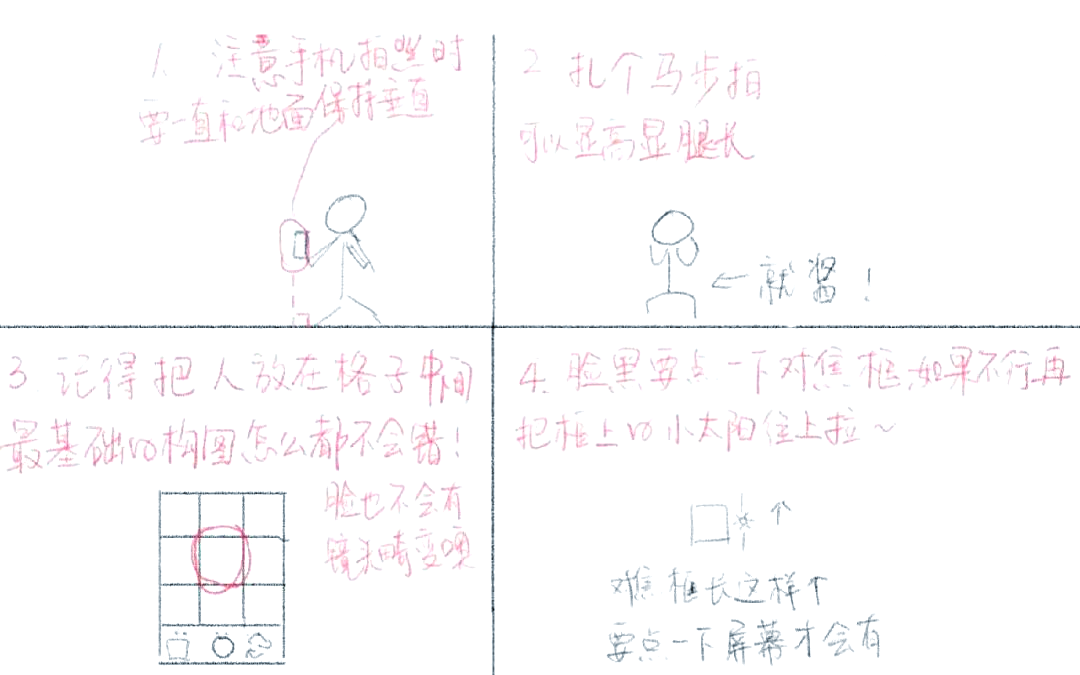 1、注意手机拍照时
要一直和地面保持垂直
2 扎个马步拍
可以显高显腿长
←就酱！
3 记得把人放在格子中间
最基础的构图怎么都不会错！
脸也不会有
镜头畸变噢
4、脸黑要点一下对焦框，如果不行再
把框上的小太阳往上拉～
↑
对焦框长这样↑
要点一下屏幕才会有